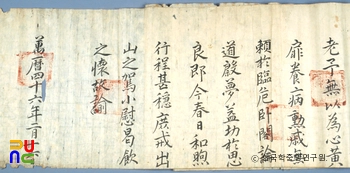 老予無以為心黃
扉養病勲戚無
賴於臨危卧閤論
道啟夢益切於思
良即今春日和煦
行程甚穩庶戒出
山之駕小慰曷飲
之懷故諭
萬曆四十六年二月
국학중앙연구원